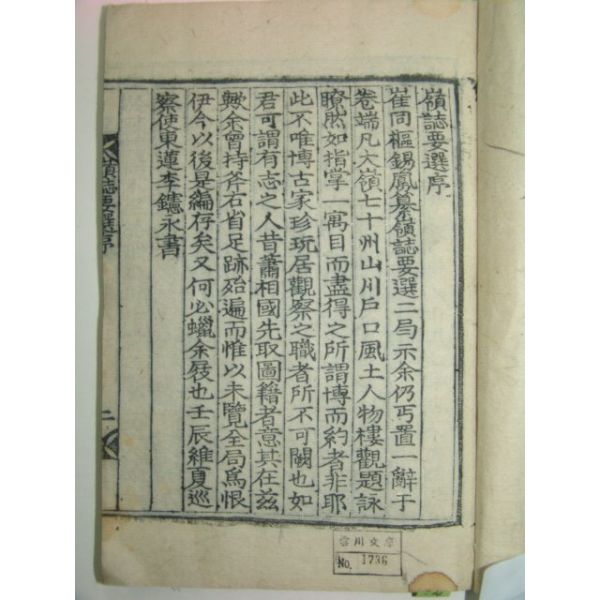 嶺誌要選序
崔同樞錫鳳纂嶺誌要選二局示余仍丐置一辭于
卷端凡大嶺七十州山川戶口風土人物樓觀題詠
瞭然如指掌一寓目而盡得之所謂博而約者非耶
此不唯博古家珍玩居觀察之職者所不可闕也如
君可謂有志之人昔蕭相國先取圖籍者意其在茲
歟余曾持斧右省足跡殆遍而惟以未覽全局爲恨
伊今以後是編存矣又何必蠟余屐也壬辰維夏巡
察使東蓮李鑢永書
嶺誌要選序
二
No. 1736